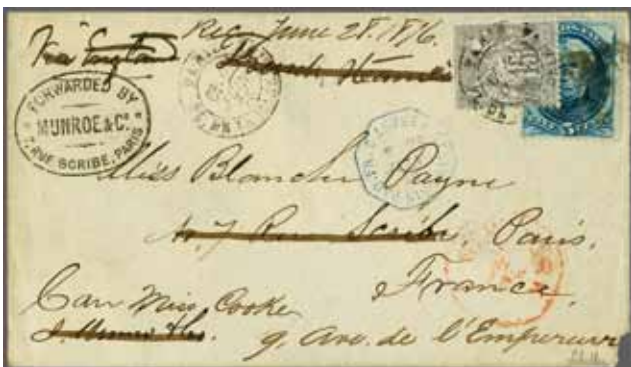 Via England Rec. June 28. 1876.
French Steamer
FORWARDED BY
MUNROE & Co.
7, RUE SCRIBE, PARIS
Miss Blanche Payne
No. 7 Rue Scribe, Paris.
France.
Care Miss Cooke
9. Ave. de l'Empereur